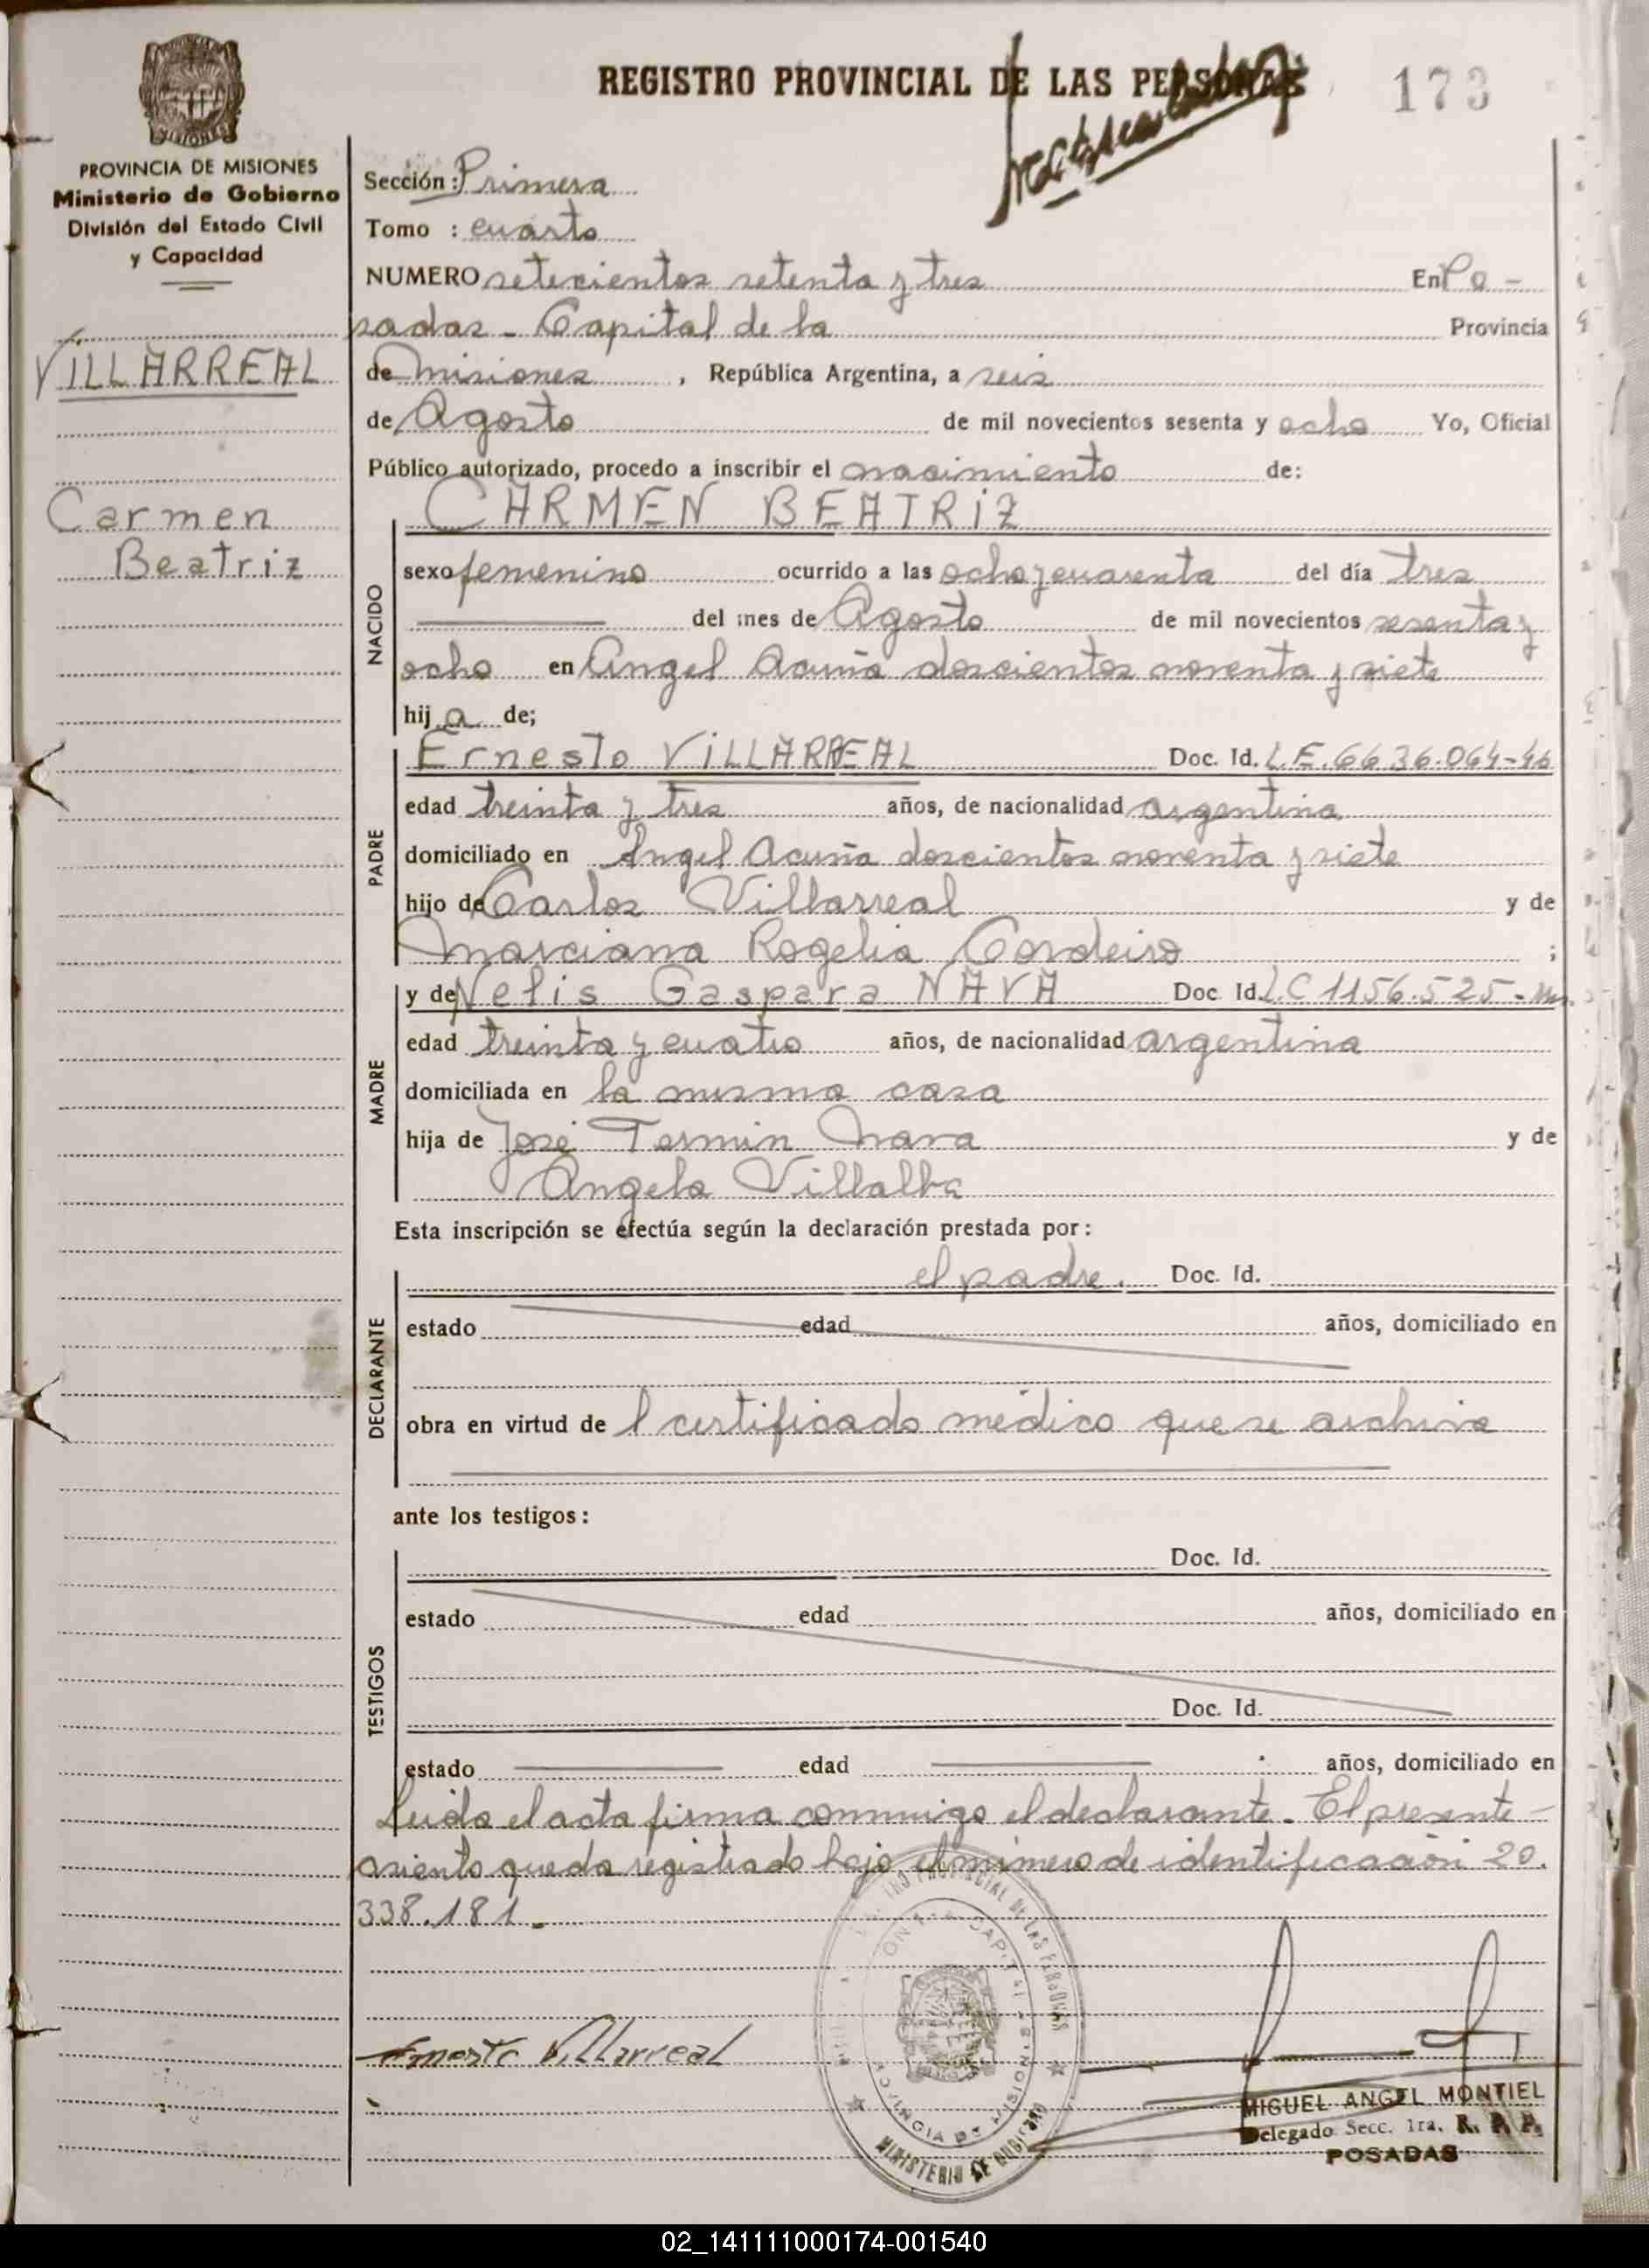 REGISTRO PROVINCIAL DE LAS PERSONAS
173
MISIONES
PROVINCIA DE MISIONES
Ministerio de Gobierno
División del Estado Civil
y Capacidad
VILLARREAL
Carmen
Beatriz
Sección: Primera
Tomo : cuarto
NUMERO setecientos setenta y tres En Po-
sadas - Capital de la Provincia
de Misiones, República Argentina, a seis
de Agosto de mil novecientos sesenta y ocho Yo, Oficial
Público autorizado, procedo a inscribir el nacimiento de:
CARMEN BEATRIZ
NACIDO
sexo femenino ocurrido a las ocho y cuarenta del día tres
del mes de Agosto de mil novecientos sesenta y
ocho en Angel Acuña doscientos noventa y siete
hij a de;
PADRE
Ernesto VILLARREAL Doc. Id. L.E. 6636.064-46
edad treinta y tres años, de nacionalidad argentina
domiciliado en Angel Acuña doscientos noventa y siete
hijo de Carlos Villarreal y de
Marciana Rogelia Cordeiro ;
MADRE
y de Nelis Gaspara NAVA Doc Id. L.C 1156.525-
edad treinta y cuatro años, de nacionalidad argentina
domiciliada en la misma casa
hija de José Termin Nava y de
Angela Villalba
Esta inscripción se efectúa según la declaración prestada por:
DECLARANTE
el padre. Doc. Id.
estado edad años, domiciliado en
obra en virtud de l certificado médico que se archiva
ante los testigos:
TESTIGOS
Doc. Id.
estado edad años, domiciliado en
Doc. Id.
estado edad años, domiciliado en
Leida el acta firma conmmigo el declarante. El presente
asiento queda registrado bajo el número de identificación 20.
338.181.-
Ernesto Villarreal
PROVINCIAL DE LAS PERSONAS
CAPITAL
MINISTERIO DE GOBIERNO
MIGUEL ANGEL MONTIEL
Delegado Secc. 1ra. R. P. P.
POSADAS
02_141111000174-001540